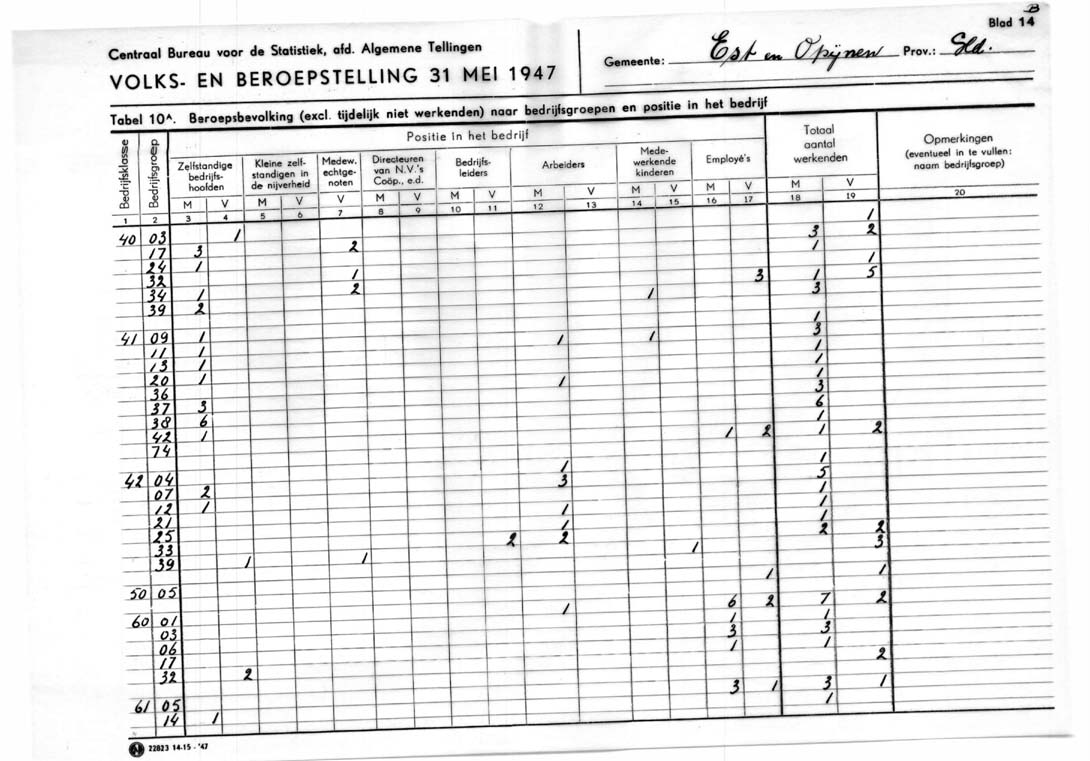 B
Blad 14
Centraal Bureau voor de Statistiek, afd. Algemene Tellingen
VOLKS- EN BEROEPSTELLING 31 MEI 1947
Gemeente: Est en Opijnen Prov.: Gld.
Tabel 10A. Beroepsbevolking (excl. tijdelijk niet werkenden) naar bedrijfsgroepen en positie in het bedrijf
Bedrijfsklasse
Bedrijfsgroep
Positie in het bedrijf
Zelfstandige bedrijfs-hoofden
Kleine zelf-standigen in de nijverheid
Medew. echtge-noten
Directeuren van N.V.'s Coöp., e.d.
Bedrijfs-leiders
Arbeiders
Mede-werkende kinderen
Employé's
Totaal aantal werkenden
Opmerkingen (eventueel in te vullen: naam bedrijfsgroep)
M V M V V M V M V M V M V M V M V
1 2 3 4 5 6 7 8 9 10 11 12 13 14 15 16 17 18 19 20
40 03 1 1
17 3 2 3 2
24 1 1
32 1 1
34 1 2 3 1 5
39 2 1 3
41 09 1 1
11 1 1 1 3
13 1 1
20 1 1
36 1 1
37 3 3
38 6 6
42 1 1
74 1 2 1 2
42 04 1 1
07 2 3 5
12 1 1
21 1 1
25 1 1
33 2 2 2 2
39 1 1 1 3
50 05 1 1
60 01 1 6 2 7 2
03 1 1
06 3 3
17 1 1
32 2 2
61 05 3 1 3 1
14 1 1
N 22823 14-15 - '47